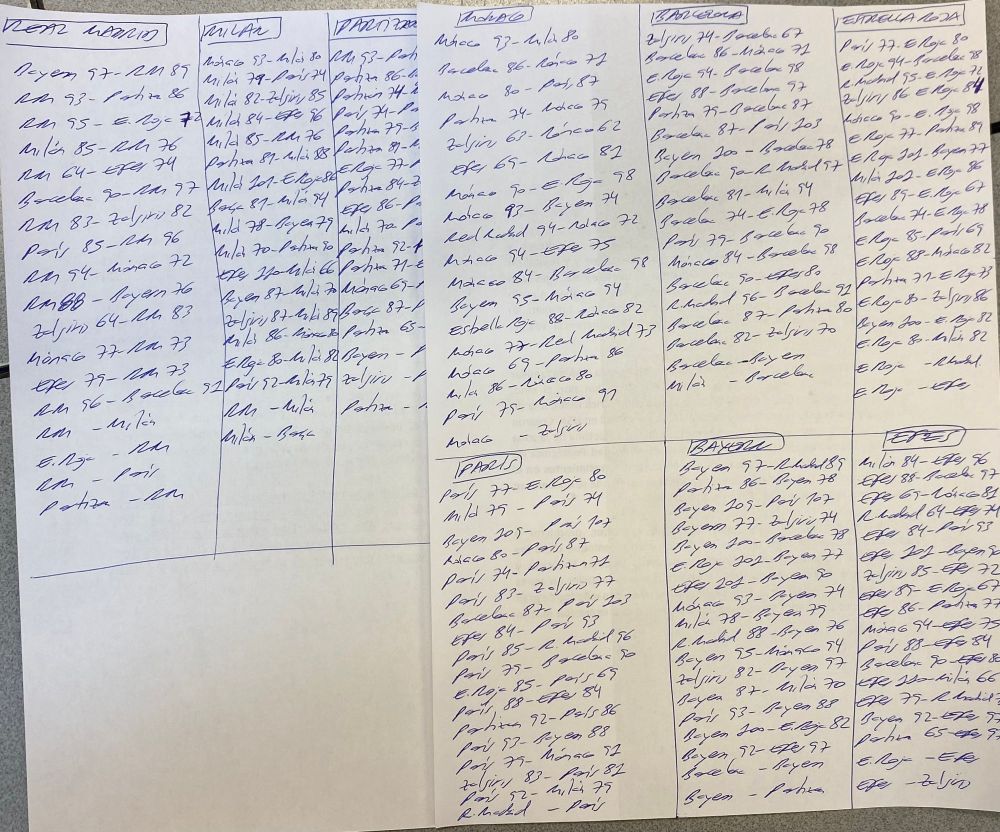 REAL MADRID
Bayern 97-RM 89
RM 93-Partizan 86
RM 95-E.Roja 72
Milán 85-RM 76
RM 64-Efes 74
Barcelona 90-RM 97
RM 83-Zalgiris 82
París 85-RM 96
RM 94-Mónaco 72
RM 88-Bayern 76
Zalgiris 64-RM 83
Mónaco 77-RM 73
Efes 79-RM 73
RM 96-Barcelona 91
RM -Milán
E.Roja -RM
RM -París
Partizan -RM
MILÁN
Mónaco 93-Milán 80
Milán 79-París 74
Milán 82-Zalgiris 85
Milán 84-Efes 96
Milán 85-RM 76
Partizan 81-Milán 88
Milán 101-E.Roja 86
Barça 81-Milán 94
Milán 78-Bayern 79
Milán 70-Partizan 90
Efes 110-Milán 66
Bayern 87-Milán 70
Zalgiris 87-Milán 89
Milán 86-Mónaco 80
E.Roja 80-Milán 82
París 92-Milán 79
RM -Milán
Milán -Barça
PARTIZAN
RM 93-Parti
Partizan 86-B
Partizan 74-
París 74-P
Partizan 79-B
Partizan 81-M
E.Roja 77-P
Partizan 84-Z
Efes 86-P
Milán 70-P
Partizan 92-P
Partizan 71-E
Mónaco 69-P
Barça 87-P
Partizan 65-
Bayern -P
Zalgiris -P
Partizan -
MÓNACO
Mónaco 93-Milán 80
Barcelona 86-Mónaco 71
Mónaco 80-París 87
Partizan 74-Mónaco 79
Zalgiris 63-Mónaco 62
Efes 69-Mónaco 81
Mónaco 90-E.Roja 98
Mónaco 93-Bayern 74
Real Madrid 94-Mónaco 72
Mónaco 94-Efes 75
Mónaco 84-Barcelona 98
Bayern 95-Mónaco 94
Estrella Roja 88-Mónaco 82
Mónaco 77-Real Madrid 73
Mónaco 69-Partizan 86
Milán 86-Mónaco 80
París 79-Mónaco 91
Mónaco -Zalgiris
BARCELONA
Zalgiris 74-Barcelona 67
Barcelona 86-Mónaco 71
E.Roja 94-Barcelona 98
Efes 88-Barcelona 97
Partizan 79-Barcelona 87
Barcelona 87-París 103
Bayern 100-Barcelona 78
Barcelona 90-R.Madrid 97
Barcelona 81-Milán 94
Barcelona 74-E.Roja 78
París 79-Barcelona 90
Mónaco 84-Barcelona 98
Barcelona 90-Efes 80
R.Madrid 96-Barcelona 91
Barcelona 87-Partizan 80
Barcelona 82-Zalgiris 70
Barcelona -Bayern
Milán -Barcelona
ESTRELLA ROJA
París 77-E.Roja 80
E.Roja 94-Barcelona 98
R.Madrid 95-E.Roja 72
Zalgiris 86 E.Roja 84
Mónaco 90-E.Roja 98
E.Roja 77-Partizan 89
E.Roja 101-Bayern 77
Milán 101-E.Roja 86
Efes 89-E.Roja 67
Barcelona 74-E.Roja 78
E.Roja 85-París 69
E.Roja 88-Mónaco 82
Partizan 71-E.Roja 73
E.Roja 80-Zalgiris 86
Bayern 100-E.Roja 82
E.Roja 80-Milán 82
E.Roja -R.Madrid
E.Roja -Efes
PARÍS
París 77-E.Roja 80
Milán 79-París 74
Bayern 109-París 107
Mónaco 80-París 87
París 74-Partizan 71
París 83-Zalgiris 77
Barcelona 87-París 103
Efes 84-París 93
París 85-R.Madrid 96
París 79-Barcelona 90
E.Roja 85-París 69
París 88-Efes 84
Partizan 92-París 86
París 93-Bayern 88
París 79-Mónaco 91
Zalgiris 83-París 81
París 92-Milán 79
R.Madrid -París
BAYERN
Bayern 97-R.Madrid 89
Partizan 86-Bayern 78
Bayern 109-París 107
Bayern 77-Zalgiris 74
Bayern 100-Barcelona 78
E.Roja 101-Bayern 77
Efes 101-Bayern 90
Mónaco 93-Bayern 74
Milán 78-Bayern 79
R.Madrid 88-Bayern 76
Bayern 95-Mónaco 94
Zalgiris 82-Bayern 97
Bayern 87-Milán 70
París 93-Bayern 88
Bayern 100-E.Roja 82
Bayern 92-Efes 97
Barcelona -Bayern
Bayern -Partizan
EFES
Milán 84-Efes 96
Efes 88-Barcelona 97
Efes 69-Mónaco 81
R.Madrid 64-Efes 74
Efes 84-París 93
Efes 101-Bayern 90
Zalgiris 85-Efes 72
Efes 89-E.Roja 67
Efes 86-Partizan 77
Mónaco 94-Efes 75
París 88-Efes 84
Barcelona 90-Efes 80
Efes 110-Milán 66
Efes 79-R.Madrid 7
Bayern 92-Efes 97
Partizan 65-Efes 97
E.Roja -Efes
Efes -Zalgiris